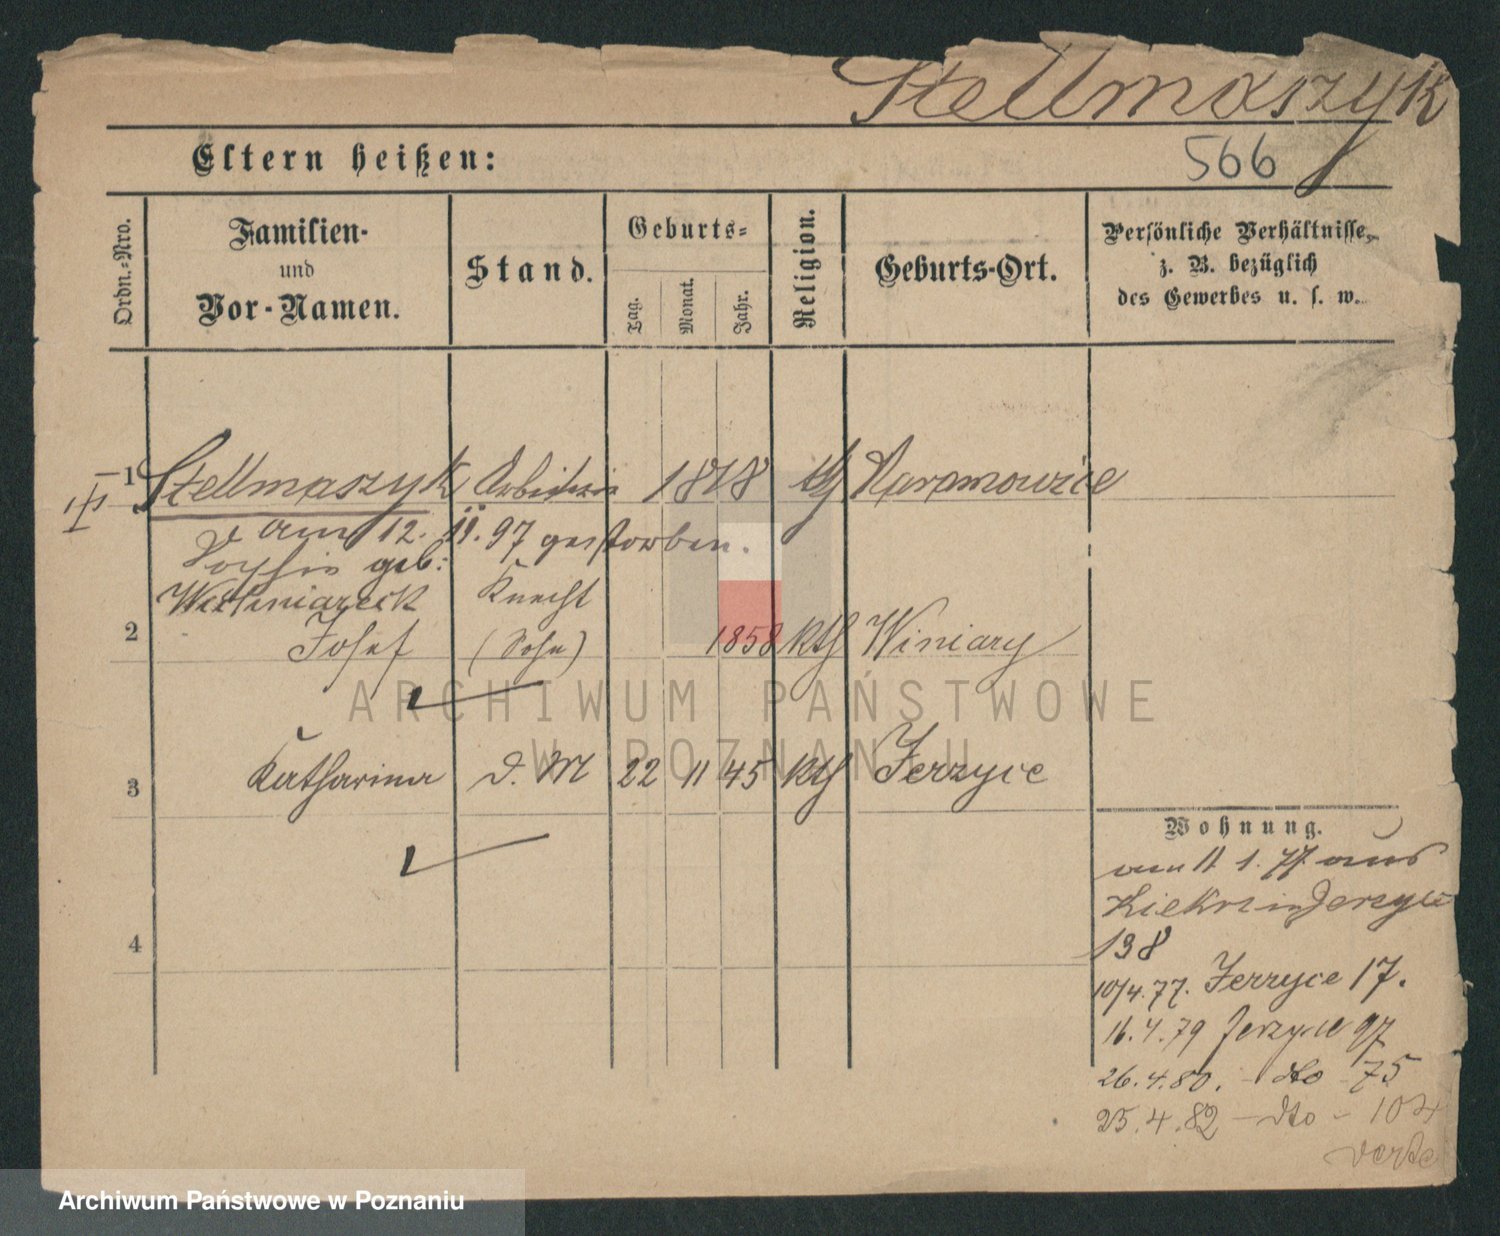 Stellmaszyk
Eltern heißen:
566
Ordn.-Nro.
Familien-
und
Vor-Namen.
Stand.
Geburts-
Tag.
Monat.
Jahr.
Religion.
Geburts-Ort.
Persönliche Verhältnisse,
z. B. bezüglich
des Gewerbes u. s. w.
1 Stellmaszyk Arbeiterin 1818 Naramowice
am 12. 11. 97 gestorben.
geb:
Knecht
2 Josef (Sohn) 1858 kth Winiary
3 Katharina d. M 22 11 45 kth Jerzyce
4
Wohnung.
am 11 1. 77 aus
Kiekrz in Jerzyce
138
10/4. 77. Jerzyce 17.
16. 4. 79 Jerzyce 97
26. 4. 80. - dto 75
25. 4. 82 - dto - 104
verte
ARCHIWUM PAŃSTWOWE
W POZNANIU
Archiwum Państwowe w Poznaniu